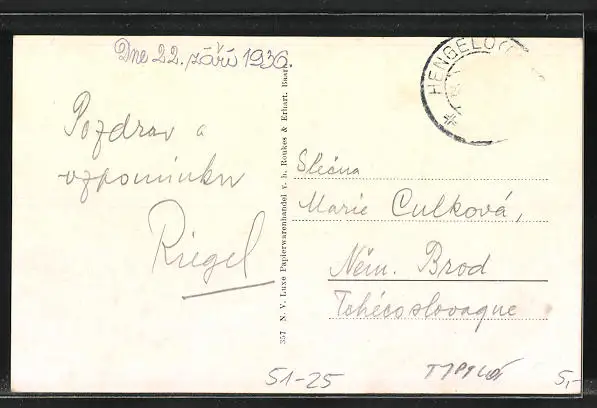 Dne 22. září 1936.
HENGELO
Pozdrav a
vzpomínku
Riegel
357 N. V. Luxe Papierwarenhandel v. h. Roukes & Erhart. Baarn
Slečna
Marie Culková,
Něm. Brod
Tchécoslovaque
51-25
5,-